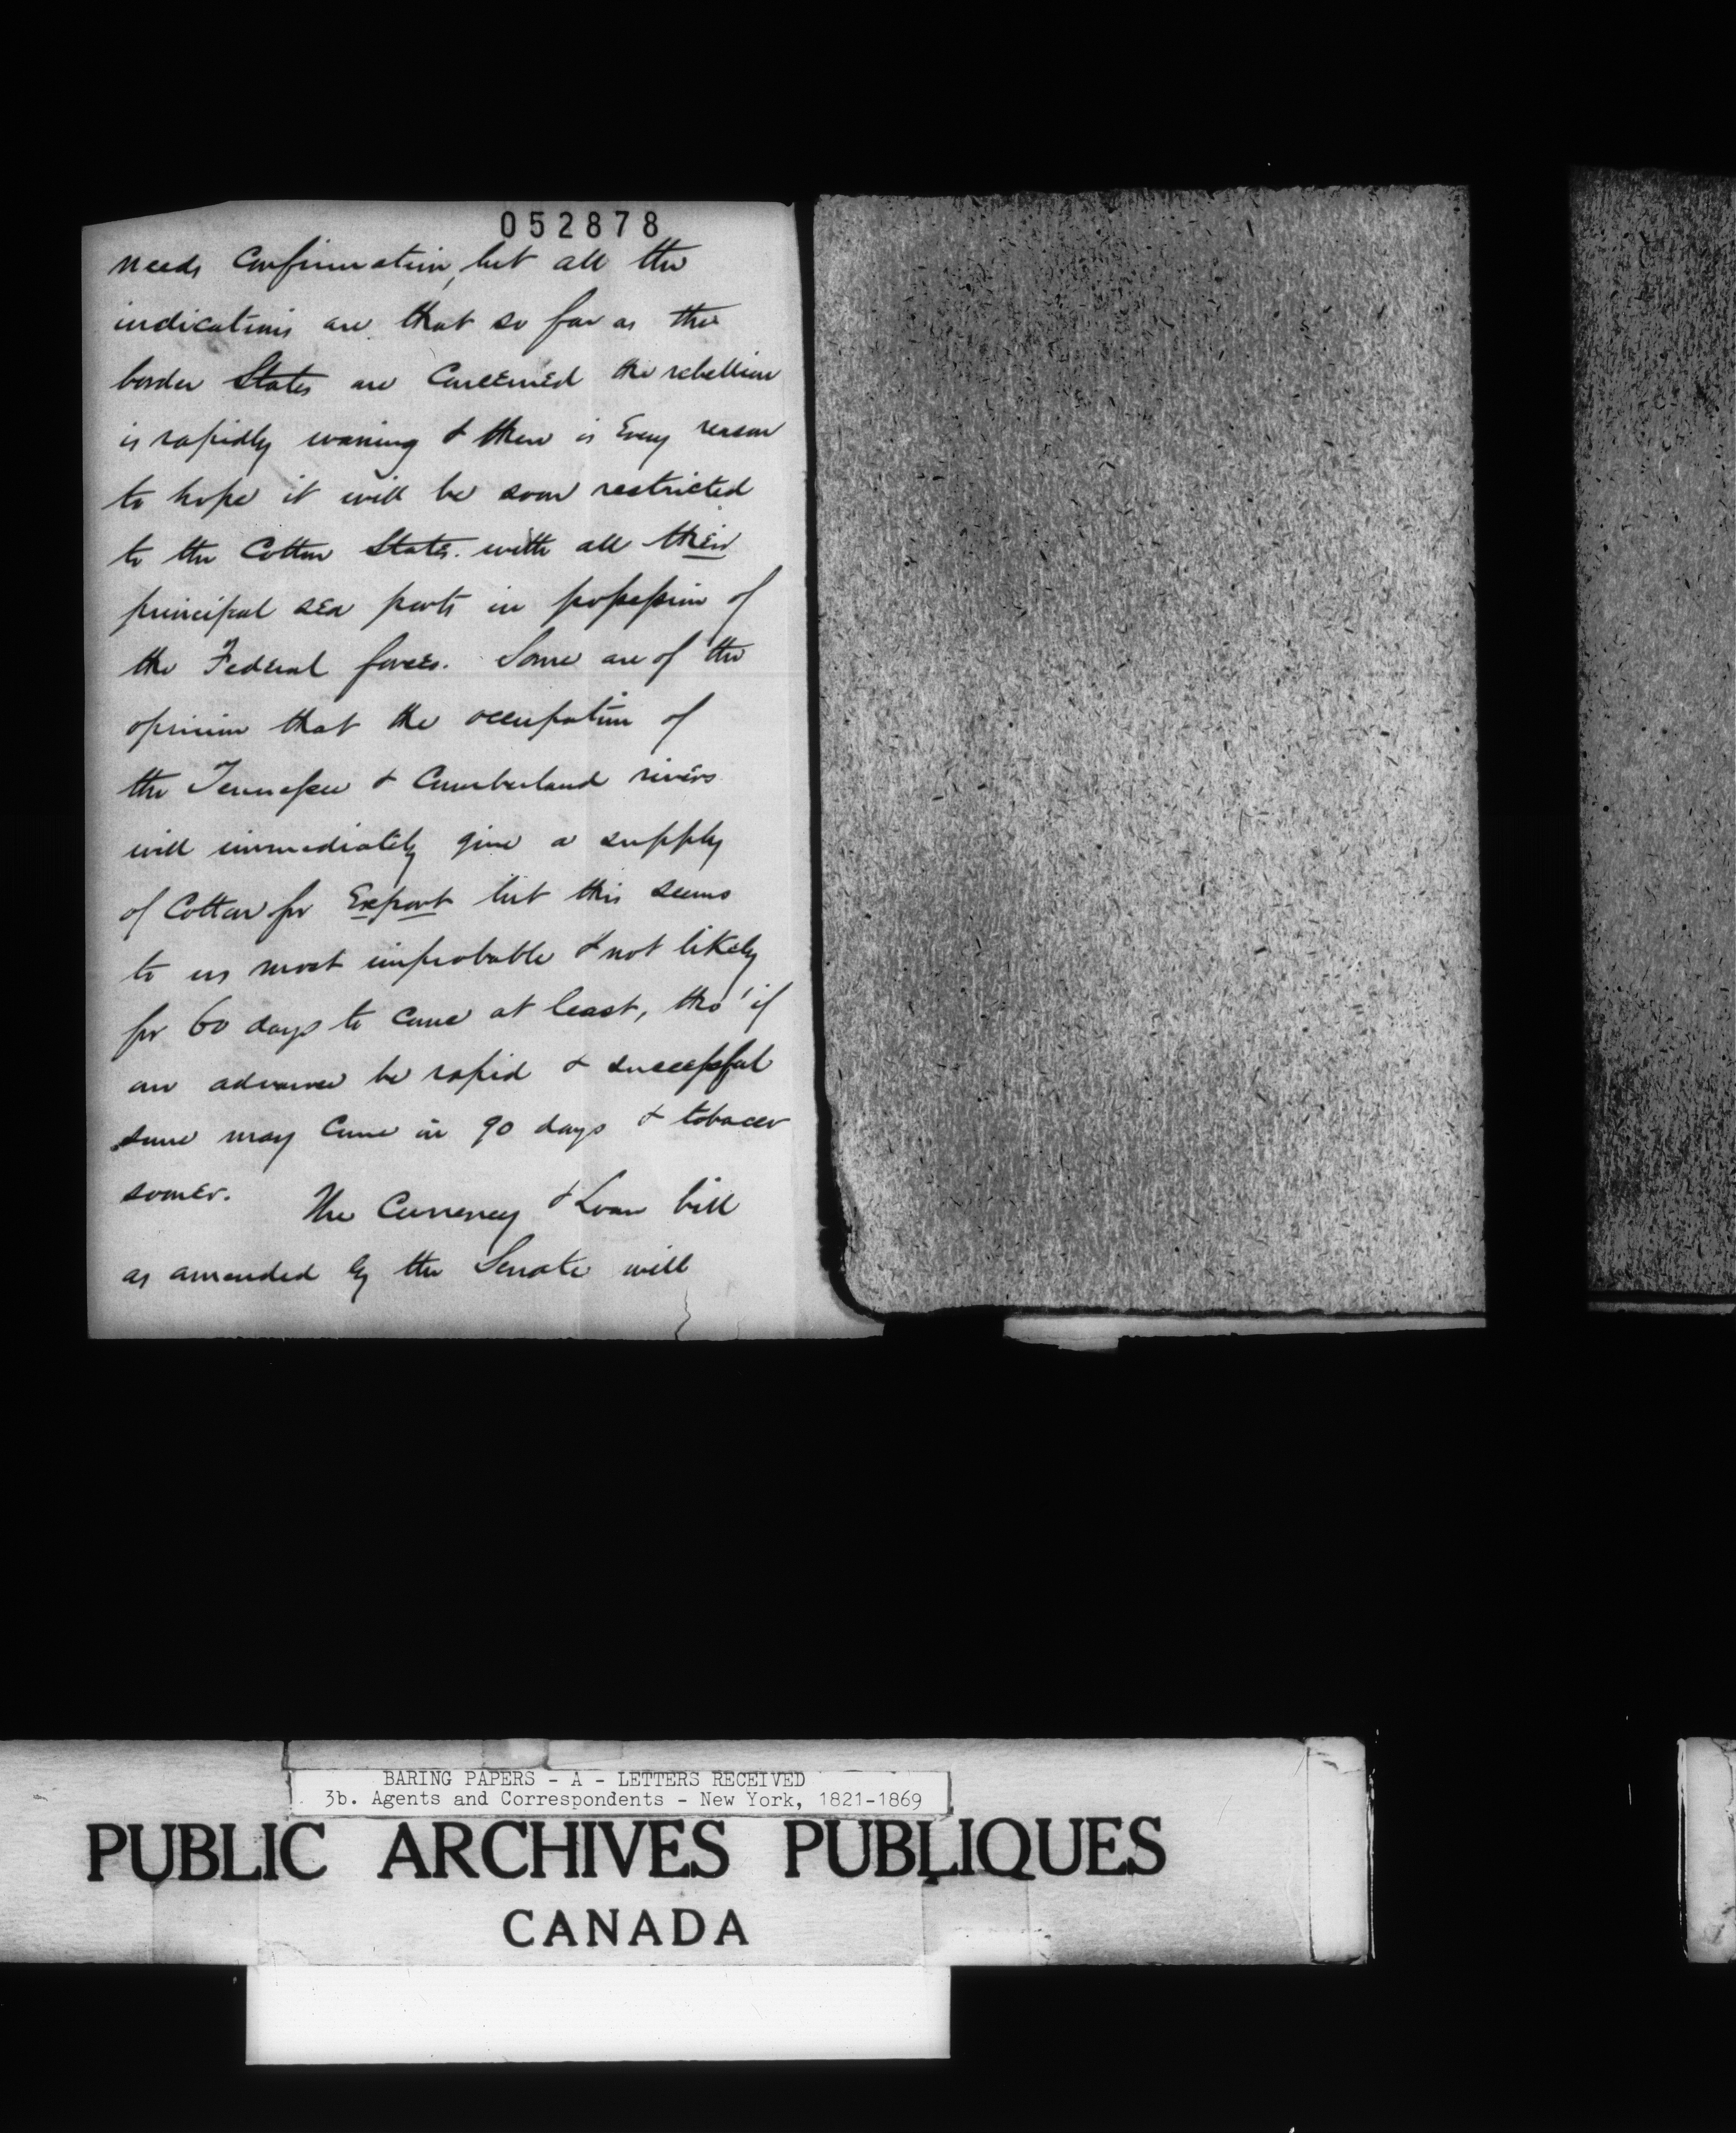 052878
needs Confirmation, but all the
indications are that so far as the
border States are Concerned the rebellion
is rapidly waning & there is Every reason
to hope it will be soon restricted
to the Cotton States. with all their
principal sea ports in possession of
the Federal forces. Some are of the
opinion that the occupation of
the Tennessee & Cumberland rivers
will immediately give a supply
of Cotton for Export but this seems
to us most improbable & not likely
for 60 days to come at least, tho' if
an advance be rapid & successful
some may Come in 90 days & tobacco
sooner. The Currency & Loan bill
as amended by the Senate will
BARING PAPERS - A - LETTERS RECEIVED
3b. Agents and Correspondents - New York, 1821-1869
PUBLIC ARCHIVES PUBLIQUES
CANADA